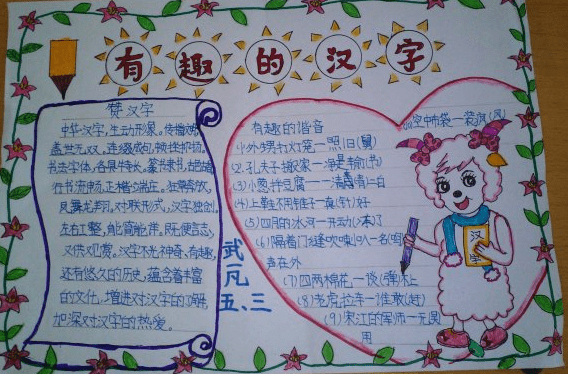 有趣的汉字
赞汉字
中华汉字,生动形象。传播文明,
盖世无双。连缀成句,顿挫抑扬。
书法字体,各具特长。篆隶
行书流畅,正楷端庄。狂草奔放,
凤舞龙翔。对联形式,汉字独创。
左右工整,能简能详。既便言志,
又供观赏。汉字不光神奇、有趣,
还有悠久的历史,蕴含着丰富
的文化,增进对汉字的
加深对汉字的热爱。
武一凡
五、三
有趣的谐音
(1)外甥打灯笼一照旧(舅)
(2)孔夫子搬家一净是输(书)
(3)小葱拌豆腐一一清二白
(4)上鞋不用锥子一真(针)好
(5)四月的冰河一开动(冻)了
(6)隔着门缝吹喇叭一名(鸣)
声在外
(7)四两棉花一谈(弹)不上
(8)老虎拉车一谁敢(赶)
(9)宋江的军师一无(吴)
用
(10)空中布袋一装疯(风)
汉字